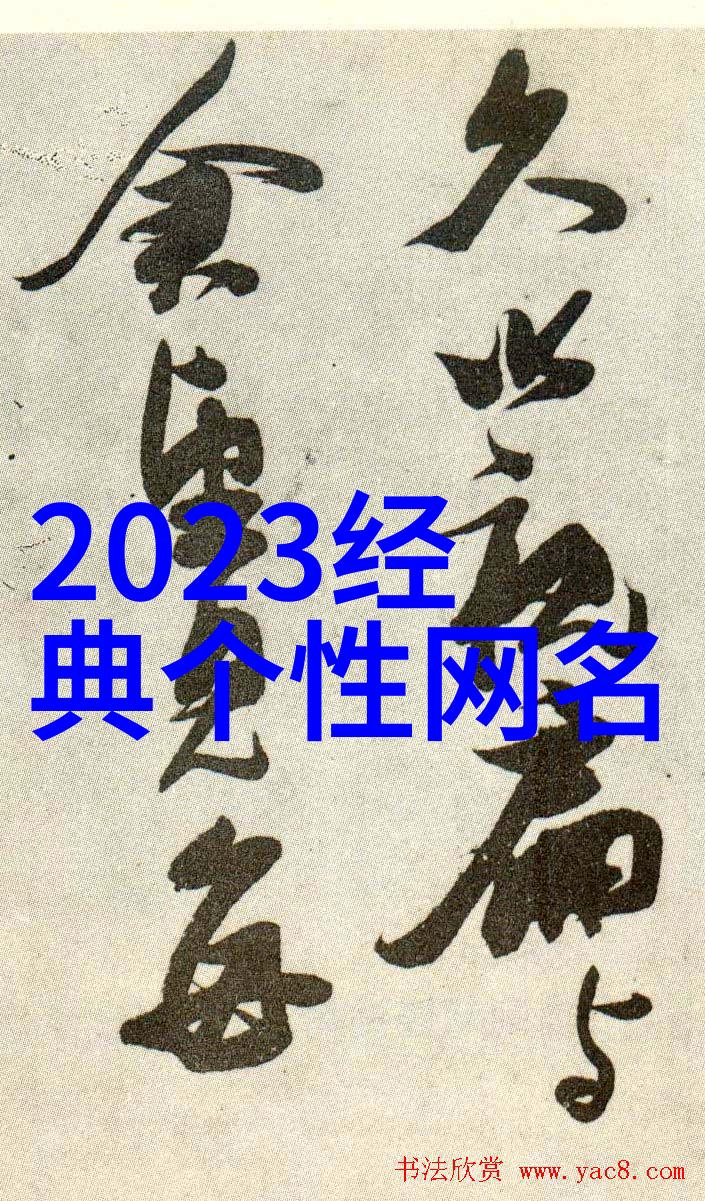 久与
余見每
2023经
典个性网名
书法欣赏 www.yac8.com